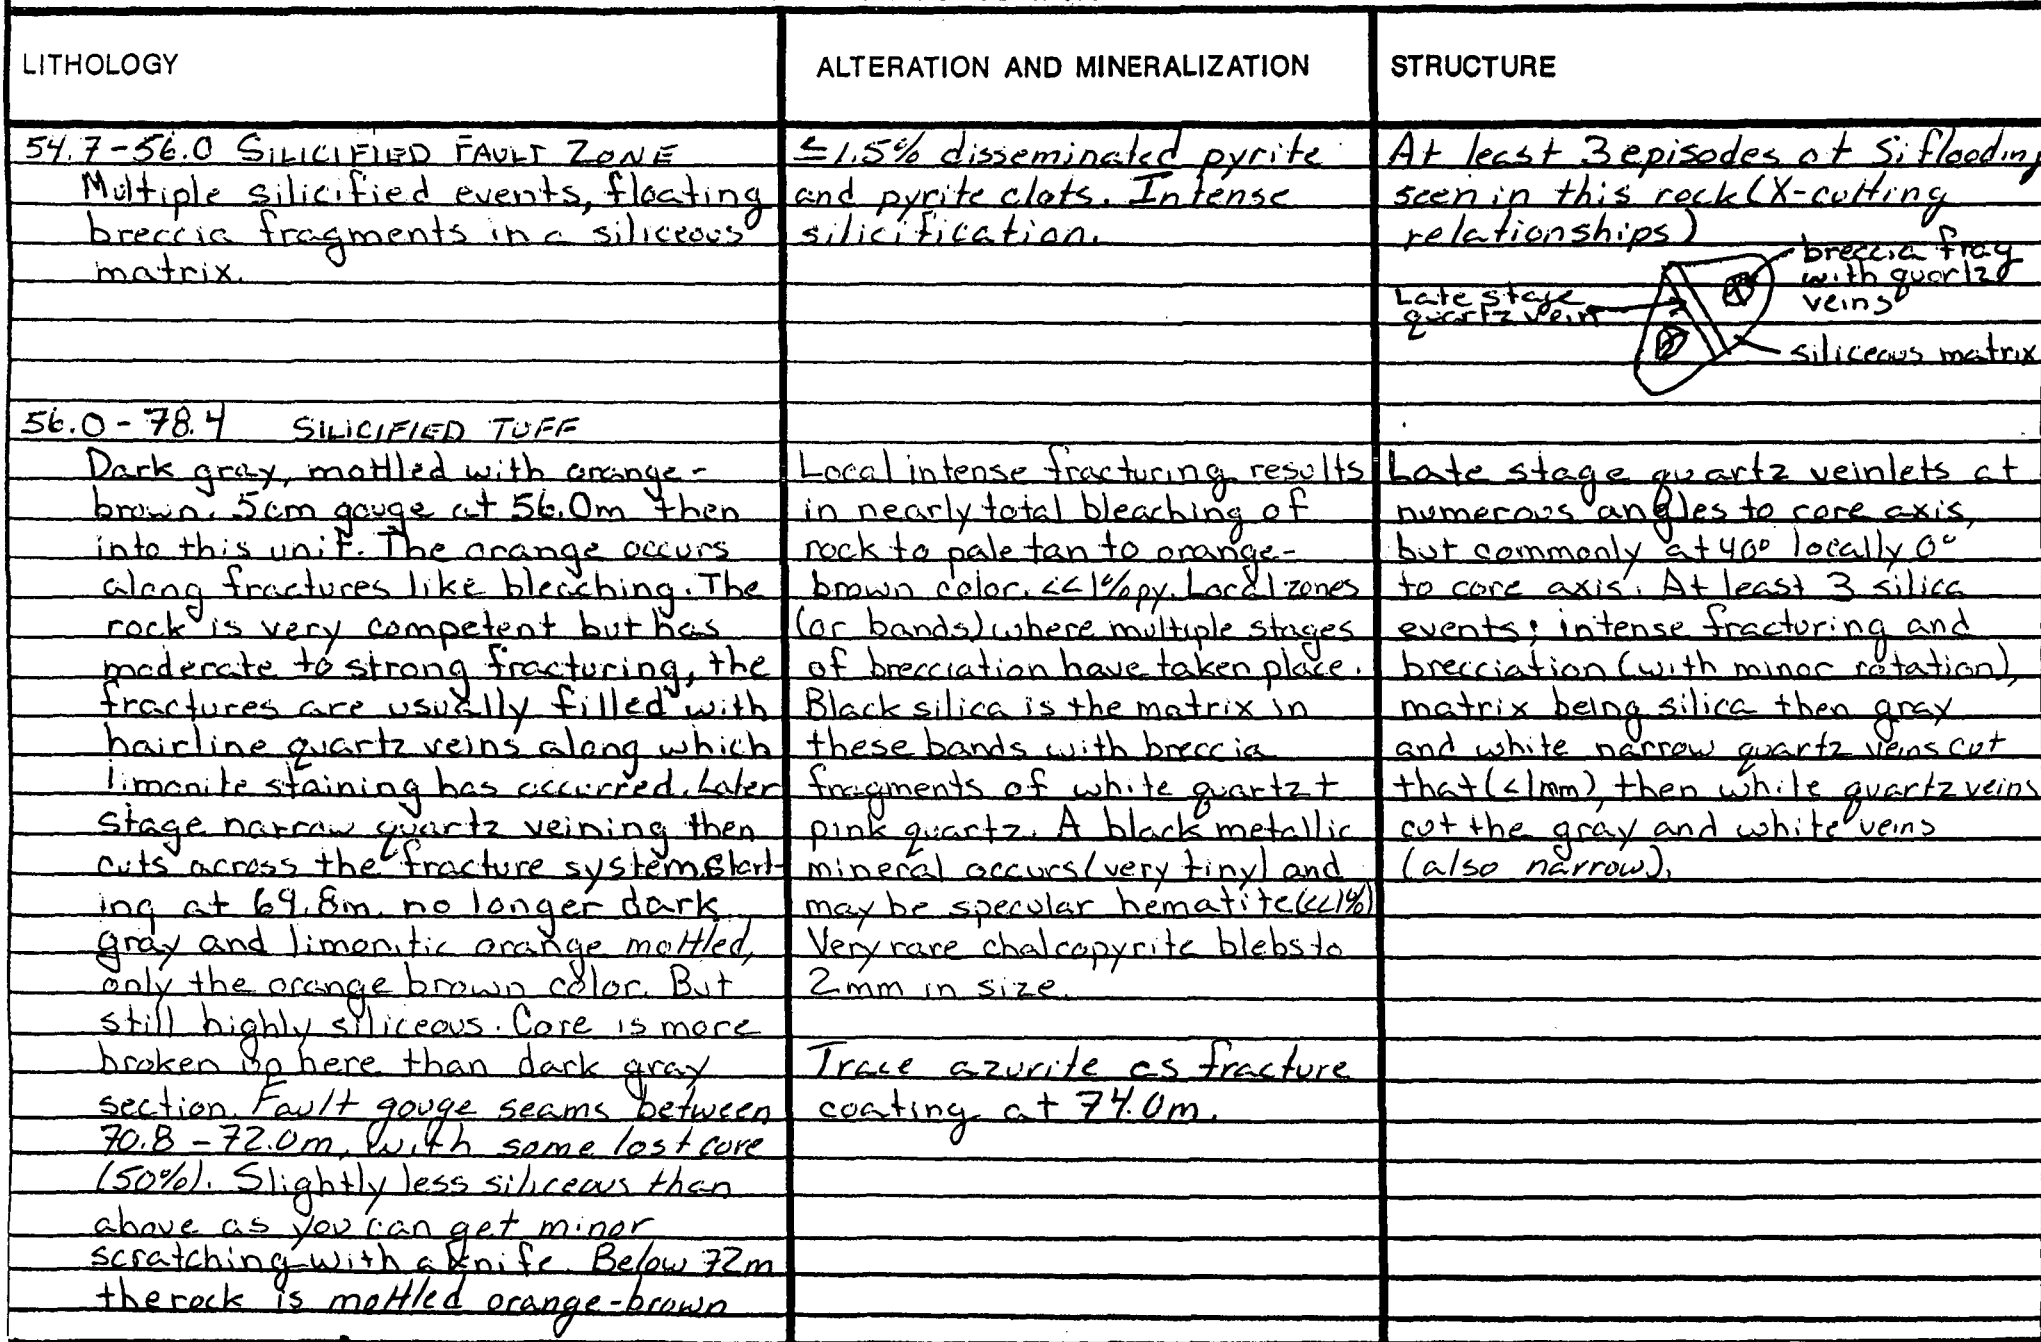 LITHOLOGY
ALTERATION AND MINERALIZATION
STRUCTURE
54.7-56.0 SILICIFIED FAULT ZONE
Multiple silicified events, floating
breccia fragments in a siliceous
matrix.
≤1.5% disseminated pyrite
and pyrite clots. Intense
silicification.
At least 3 episodes of Si flooding
seen in this rock (X-cutting
relationships)
breccia frag
with quartz
veins
Late stage
quartz vein
siliceous matrix
56.0-78.4 SILICIFIED TUFF
Dark gray, mottled with orange-
brown. 5cm gouge at 56.0m then
into this unit. The orange occurs
along fractures like bleaching. The
rock is very competent but has
moderate to strong fracturing, the
fractures are usually filled with
hairline quartz veins along which
limonite staining has occurred. Later
stage narrow quartz veining then
cuts across the fracture system. Start-
ing at 69.8m. no longer dark
gray and limonitic orange mottled,
only the orange brown color. But
still highly siliceous. Core is more
broken up here than dark gray
section. Fault gouge seams between
70.8-72.0m, with some lost core
(50%). Slightly less siliceous than
above as you can get minor
scratching with a knife. Below 72m
the rock is mottled orange-brown
Local intense fracturing results
in nearly total bleaching of
rock to pale tan to orange-
brown color. <<1% py. Local zones
(or bands) where multiple stages
of brecciation have taken place.
Black silica is the matrix in
these bands with breccia
fragments of white quartz +
pink quartz. A black metallic
mineral occurs (very tiny) and
may be specular hematite (<<1%)
Very rare chalcopyrite blebs to
2mm in size.
Trace azurite as fracture
coating at 74.0m.
Late stage quartz veinlets at
numerous angles to core axis,
but commonly at 40° locally 0°
to core axis. At least 3 silica
events; intense fracturing and
brecciation (with minor rotation),
matrix being silica then gray
and white narrow quartz veins cut
that (<1mm), then white quartz veins
cut the gray and white veins
(also narrow).